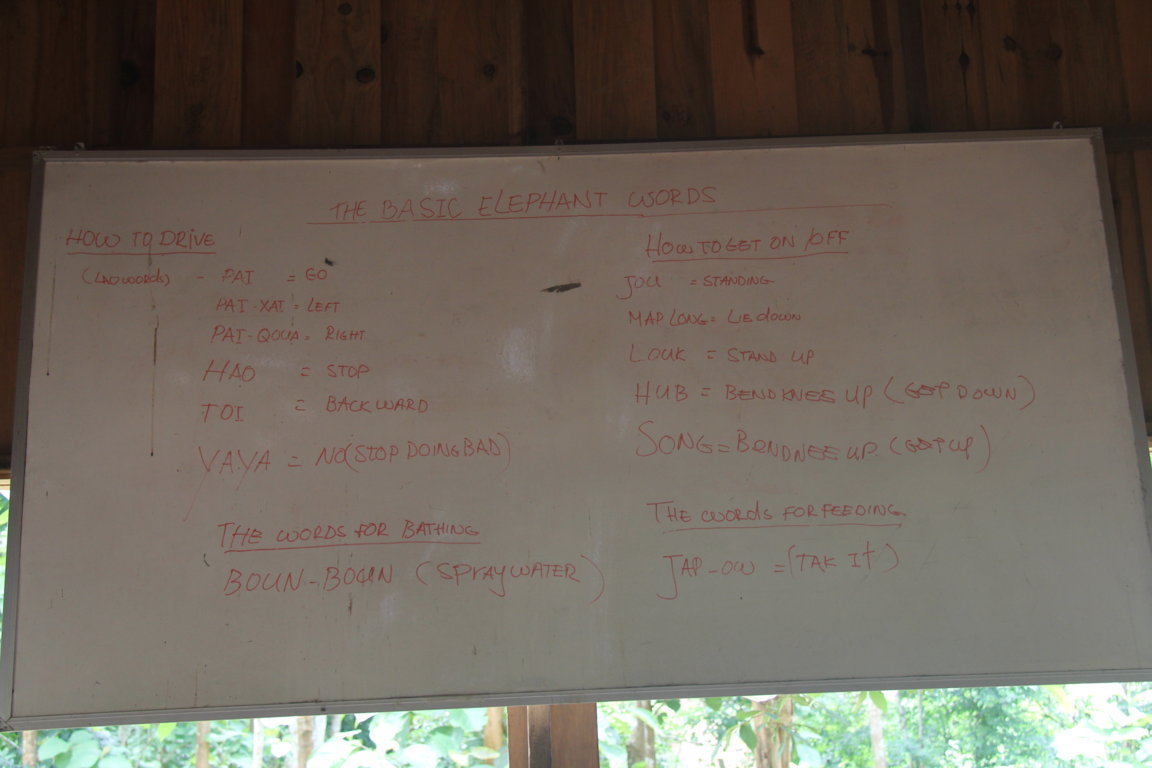 THE BASIC ELEPHANT WORDS
HOW TO DRIVE
(LAO WORDS) - PAI = GO
PAI-XAI = LEFT
PAI-QOUA = RIGHT
HAO = STOP
TOI = BACKWARD
YAYA = NO(STOP DOING BAD)
THE WORDS FOR BATHING
BOUN-BOUN (SPRAY WATER)
HOW TO GET ON /OFF
JOU = STANDING
MAP LONG = LIE DOWN
LOUK = STAND UP
HUB = BEND KNEE UP (GET DOWN)
SONG = BENDNEE UP (GET UP)
THE WORDS FOR FEEDING
JAP-OW = (TAK IT)